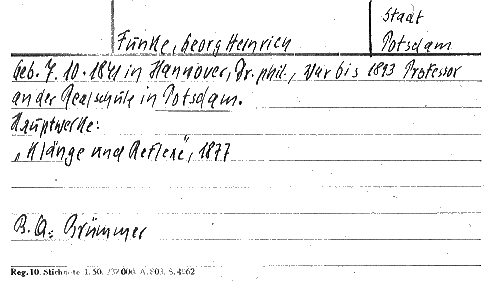 Staat
Funke, Georg Heinrich Potsdam
Geb. 7. 10. 1841 in Hannover, Dr. phil., War bis 1893 Professor
an der Realschule in Potsdam.
Hauptwerke:
„Klänge und Reflexe", 1877
B. Q.: Brümmer
Reg. 10. 1. 50.